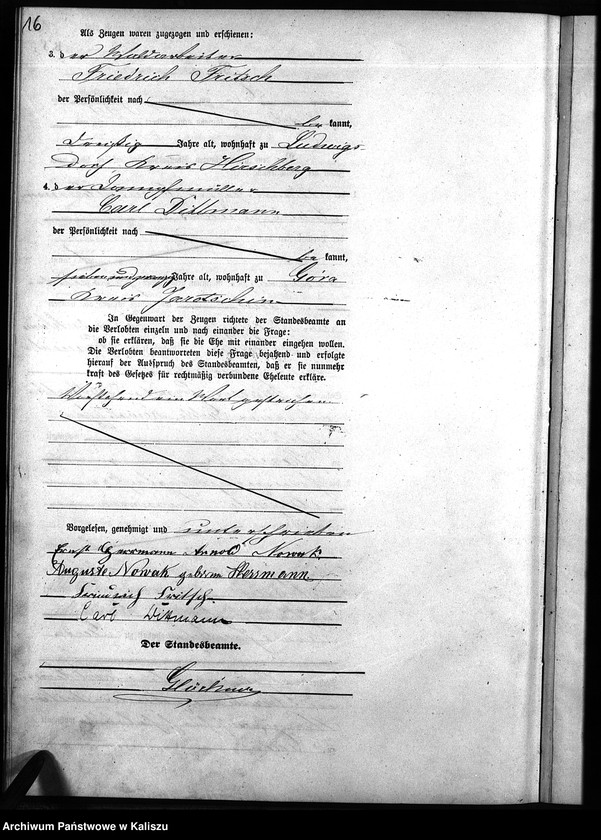 16
Als Zeugen waren zugezogen und erschienen:
3. der Waldarbeiter
Friedrich Fritsch
der Persönlichkeit nach
be kannt,
dreißig Jahre alt, wohnhaft zu Ludwigs
dorf Kreis Hirschberg
4. der Dampfmüller
Carl Dittmann
der Persönlichkeit nach
be kannt,
sieben und zwanzig Jahre alt, wohnhaft zu Góra
Kreis Jarotschin
In Gegenwart der Zeugen richtete der Standesbeamte an
die Verlobten einzeln und nach einander die Frage:
ob sie erklären, daß sie die Ehe mit einander eingehen wollen.
Die Verlobten beantworteten diese Frage bejahend und erfolgte
hierauf der Ausspruch des Standesbeamten, daß er sie nunmehr
kraft des Gesetzes für rechtmäßig verbundene Eheleute erkläre.
Vorstehend ein Wort gestrichen
Vorgelesen, genehmigt und unterschrieben
Ernst Herrmann Arnold Nowak
Auguste Nowak geborne Herrmann
Friedrich Fritsch.
Carl Dittmann
Der Standesbeamte.
Glöckner
Archiwum Państwowe w Kaliszu